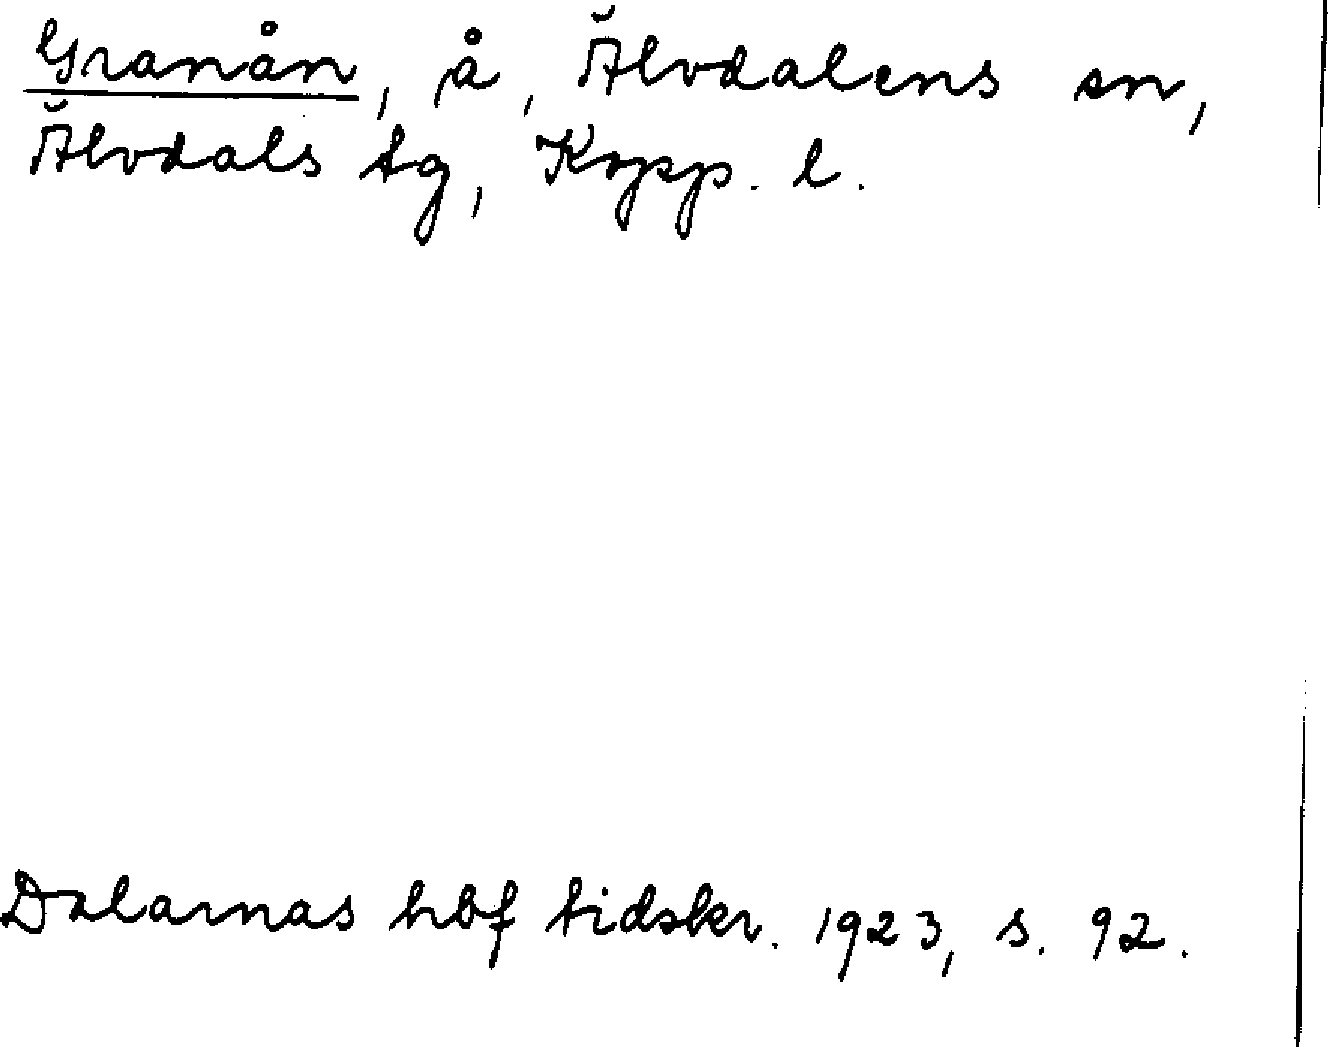 Granån, å, Älvdalens sn,
Älvdals tg, Kopp. l.
Dalarnas hbf tidskr. 1923, s. 92.